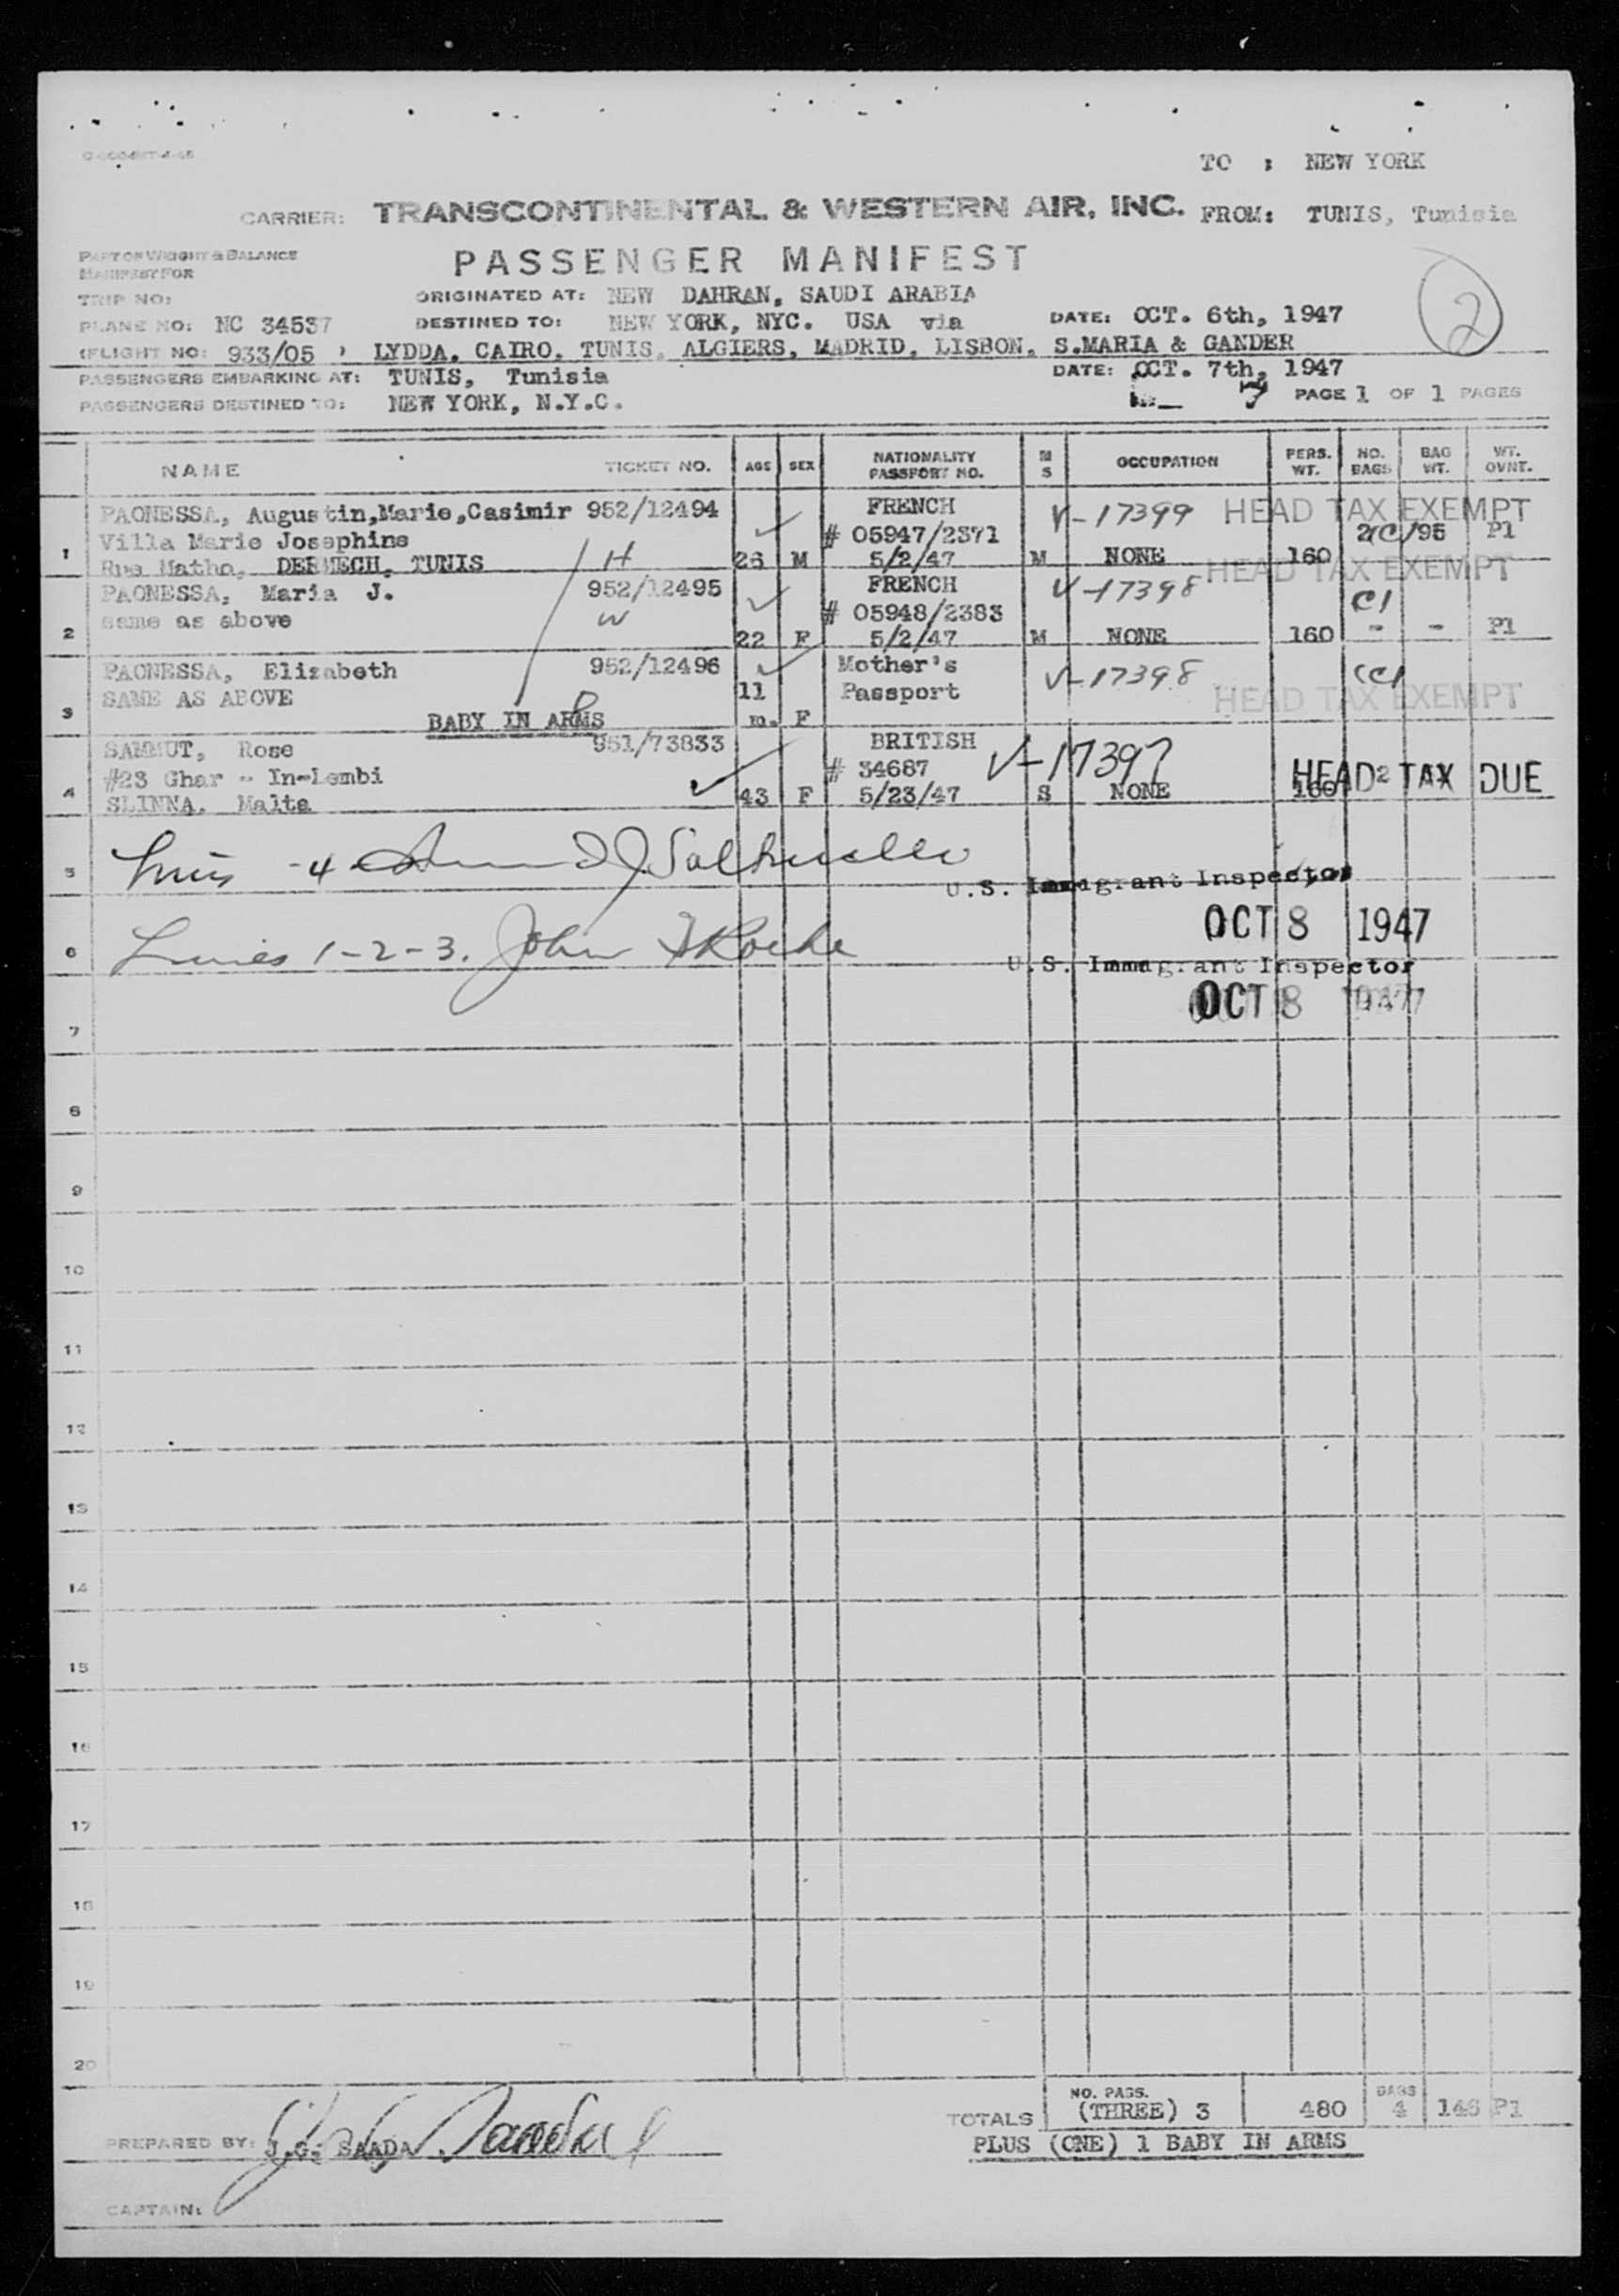 TO : NEW YORK
CARRIER: TRANSCONTINENTAL & WESTERN AIR, INC. FROM: TUNIS, Tunisia
PART ON WEIGHT & BALANCE
MANIFEST FOR
PASSENGER MANIFEST
TRIP NO: ORIGINATED AT: NEW DAHRAN, SAUDI ARABIA
2
PLANE NO: NC 34537 DESTINED TO: NEW YORK, NYC. USA via DATE: OCT. 6th, 1947
(FLIGHT NO: 933/05 ) LYDDA, CAIRO, TUNIS, ALGIERS, MADRID, LISBON, S.MARIA & GANDER
PASSENGERS EMBARKING AT: TUNIS, Tunisia DATE: OCT. 7th, 1947
PASSENGERS DESTINED TO: NEW YORK, N.Y.C. 7 PAGE 1 OF 1 PAGES
NAME TICKET NO. AGE SEX NATIONALITY PASSPORT NO. M S OCCUPATION PERS. WT. NO. BAGS BAG WT. WT. OVNT.
PAONESSA, Augustin,Marie,Casimir 952/12494 FRENCH V-17399 HEAD TAX EXEMPT
Villa Marie Josephine # 05947/2371 2/C/95 P1
1 Rue Matho, DERMECH, TUNIS H 26 M 5/2/47 M NONE 160
PAONESSA, Maria J. 952/12495 FRENCH V-17398 HEAD TAX EXEMPT
same as above W # 05948/2383 C1
2 22 F 5/2/47 M NONE 160 - - P1
PAONESSA, Elizabeth 952/12496 Mother's V-17398
SAME AS ABOVE 11 Passport HEAD TAX EXEMPT
3 BABY IN ARMS m. F
SAMMUT, Rose 951/73833 BRITISH V-17397
#23 Ghar - In-Lembi # 34687 HEAD TAX DUE
4 SLINNA, Malta 43 F 5/23/47 S NONE 160 2
5 -4
U.S. Immigrant Inspector
OCT 8 1947
6 Lines 1-2-3. John
U.S. Immigrant Inspector
OCT 8 1947
7
8
9
10
11
12
13
14
15
16
17
18
19
20
TOTALS NO. PASS. (THREE) 3 480 BAGS 4 146 P1
PREPARED BY: J.G. SAADA PLUS (ONE) 1 BABY IN ARMS
CAPTAIN: